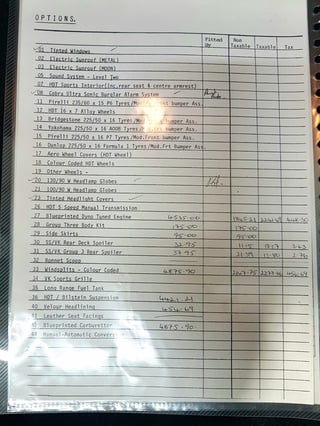 OPTIONS.
Fitted By Non Taxable Taxable Tax
01 Tinted Windows
02 Electric Sunroof (METAL)
03 Electric Sunroof (MOON)
05 Sound System - Level Two
07 HDT Sports Interior(inc.rear seat & centre armrest)
08 Cobra Ultra Sonic Burglar Alarm System
11 Pirelli 235/60 x 15 P6 Tyres/ bumper Ass.
12 HDT 16 x 7 Alloy Wheels
13 Bridgestone 225/50 x 16 Tyres/ bumper Ass.
14 Yokohama 225/50 x 16 A008 Tyres/ bumper Ass.
15 Pirelli 225/50 x 16 P7 Tyres/Mod.Front bumper Ass.
16 Dunlop 225/50 x 16 Formula 1 Tyres/Mod.Frt bumper Ass.
17 Aero Wheel Covers (HDT Wheel)
18 Colour Coded HDT Wheels
19 Other Wheels -
20 130/90 W Headlamp Globes
21 100/90 W Headlamp Globes
23 Tinted Headlight Covers
26 HDT 5 Speed Manual Transmission
27 Blueprinted Dyno Tuned Engine 4535.00
28 Group Three Body Kit 175.00 175.00
29 Side Skirts 95.00 95.00
30 SS/VK Rear Deck Spoiler 32.95
31 SS/VK Group 3 Rear Spoiler 37.95
32 Bonnet Scoop
33 Windsplits - Colour Coded 4875.90
34 VK Sports Grille
35 Long Range Fuel Tank
36 HDT / Bilstein Suspension 4421.21
40 Velour Headlining 454.69
41 Leather Seat Facings
45 Blueprinted Carburettor 4875.90
48 Manual-Automatic Convers -